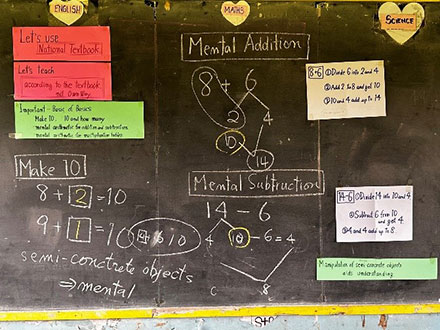 ENGLISH
MATHS
SCIENCE
Let's use
National Textbook!
Let's teach
according to the Textbook
Important - Basic of Basics
Make 10, 10 and how many
mental arithmetic for addition and subtraction
mental arithmetic for multiplication tables
Make 10
8+2=10
9+1=1
semi-concrete objects
⇒ mental
Mental Addition
8 + 6
2
4
10
14
Mental Subtruction
14 - 6
4 10 - 6 = 4
8
8+6 ①Divide 6 into 2 and 4
②Add 2 to 8 and get 10
③10 and 4 add up to 14.
14-6 ①Divide 14 into 10 and 4.
②Subtract 6 from 10
and get 4.
③4 and 4 add up to 8.
Manipulation of semi concrete objects
aids understanding